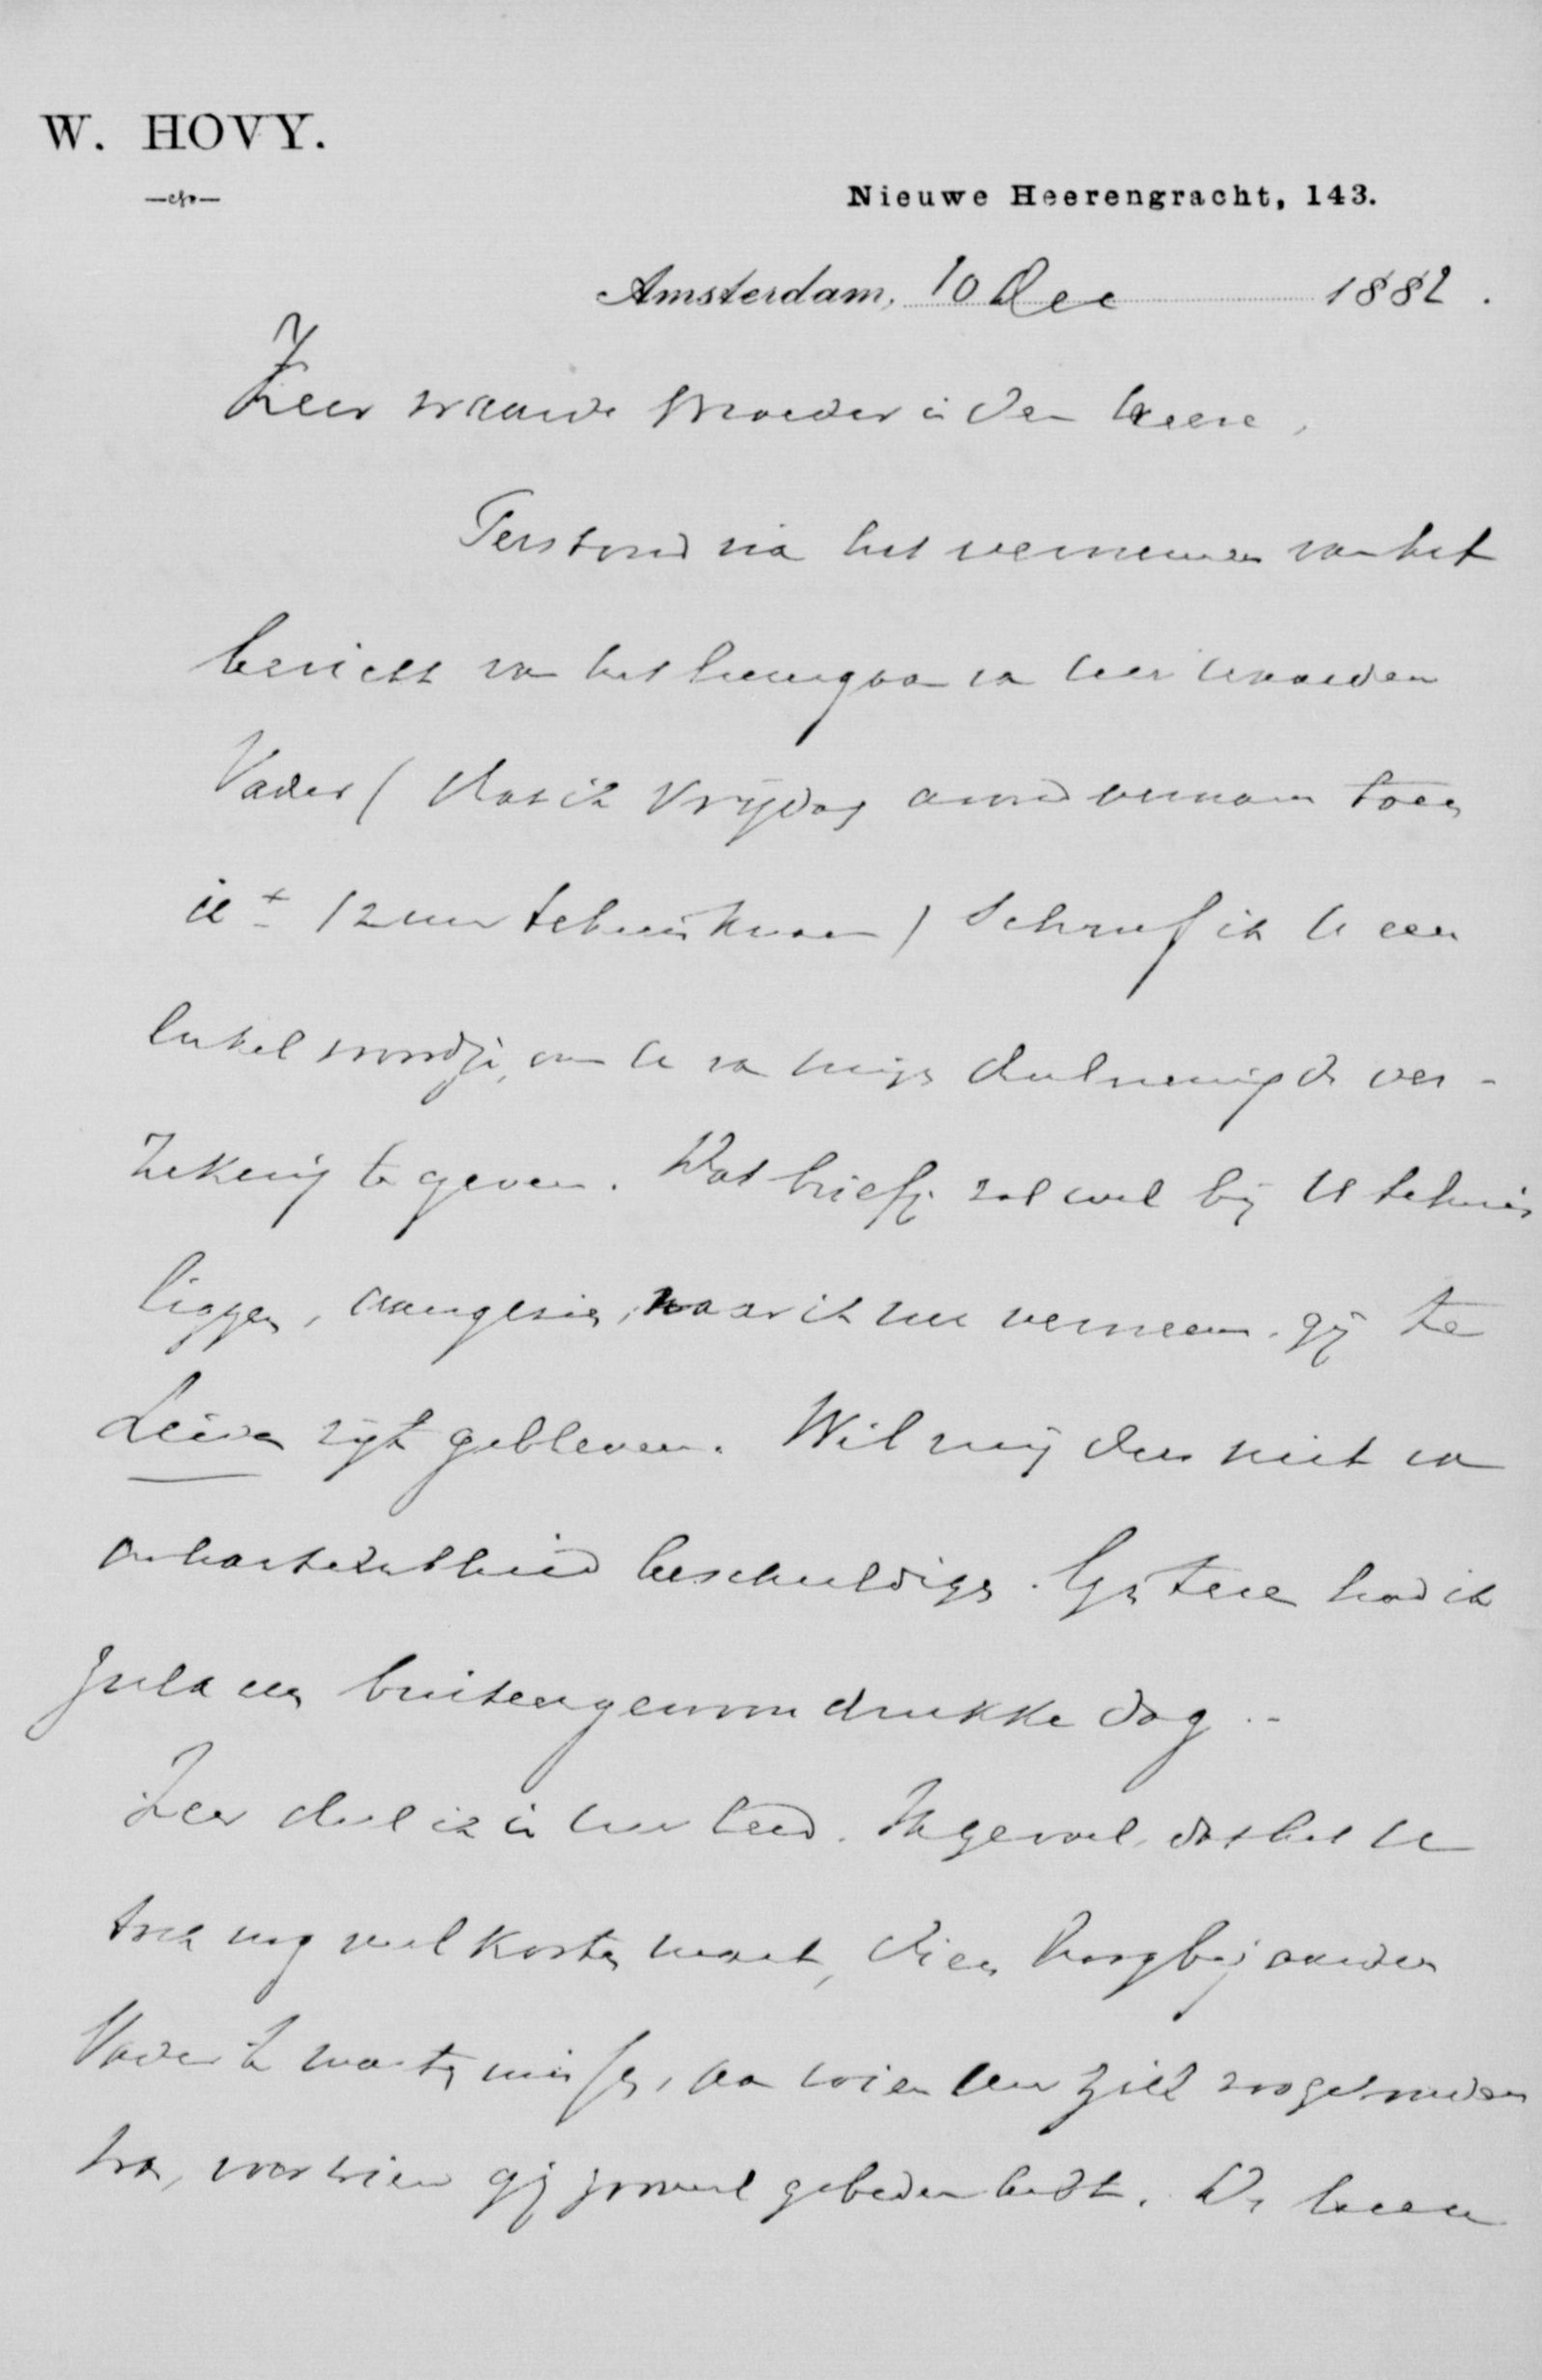 W. HOVY.
Nieuwe Heerengracht, 143.
Amsterdam, 10 Dec 1882.
Zeer waarde Broeder in den Heere,
Terstond na het vernemen van het
bericht van het heengaan van Uw waarden
Vader (dat ik Vrijdag avond vernam toen
ik ± 12 uur tehuis kwam) schreef ik U een
enkel woordje, om U van mijn deelneming de ver-
zekering te geven. Dat briefje zal wel bij U tehuis
liggen, aangezien, naar ik nu verneem, gij te
Leiden zijt gebleven. Wil mij dus niet van
onhartelijkheid beschuldigen. Gisteren had ik
juist een buitengewoon drukke dag. -
Zeer deel ik in Uw leed. Ik gevoel, dat het U
toch nog veel kosten moet, dien hoogbejaarden
Vader te moeten missen, aan wien Uw ziel zoo gebonden
was, voor wien gij zooveel gebeden hebt. De Heere